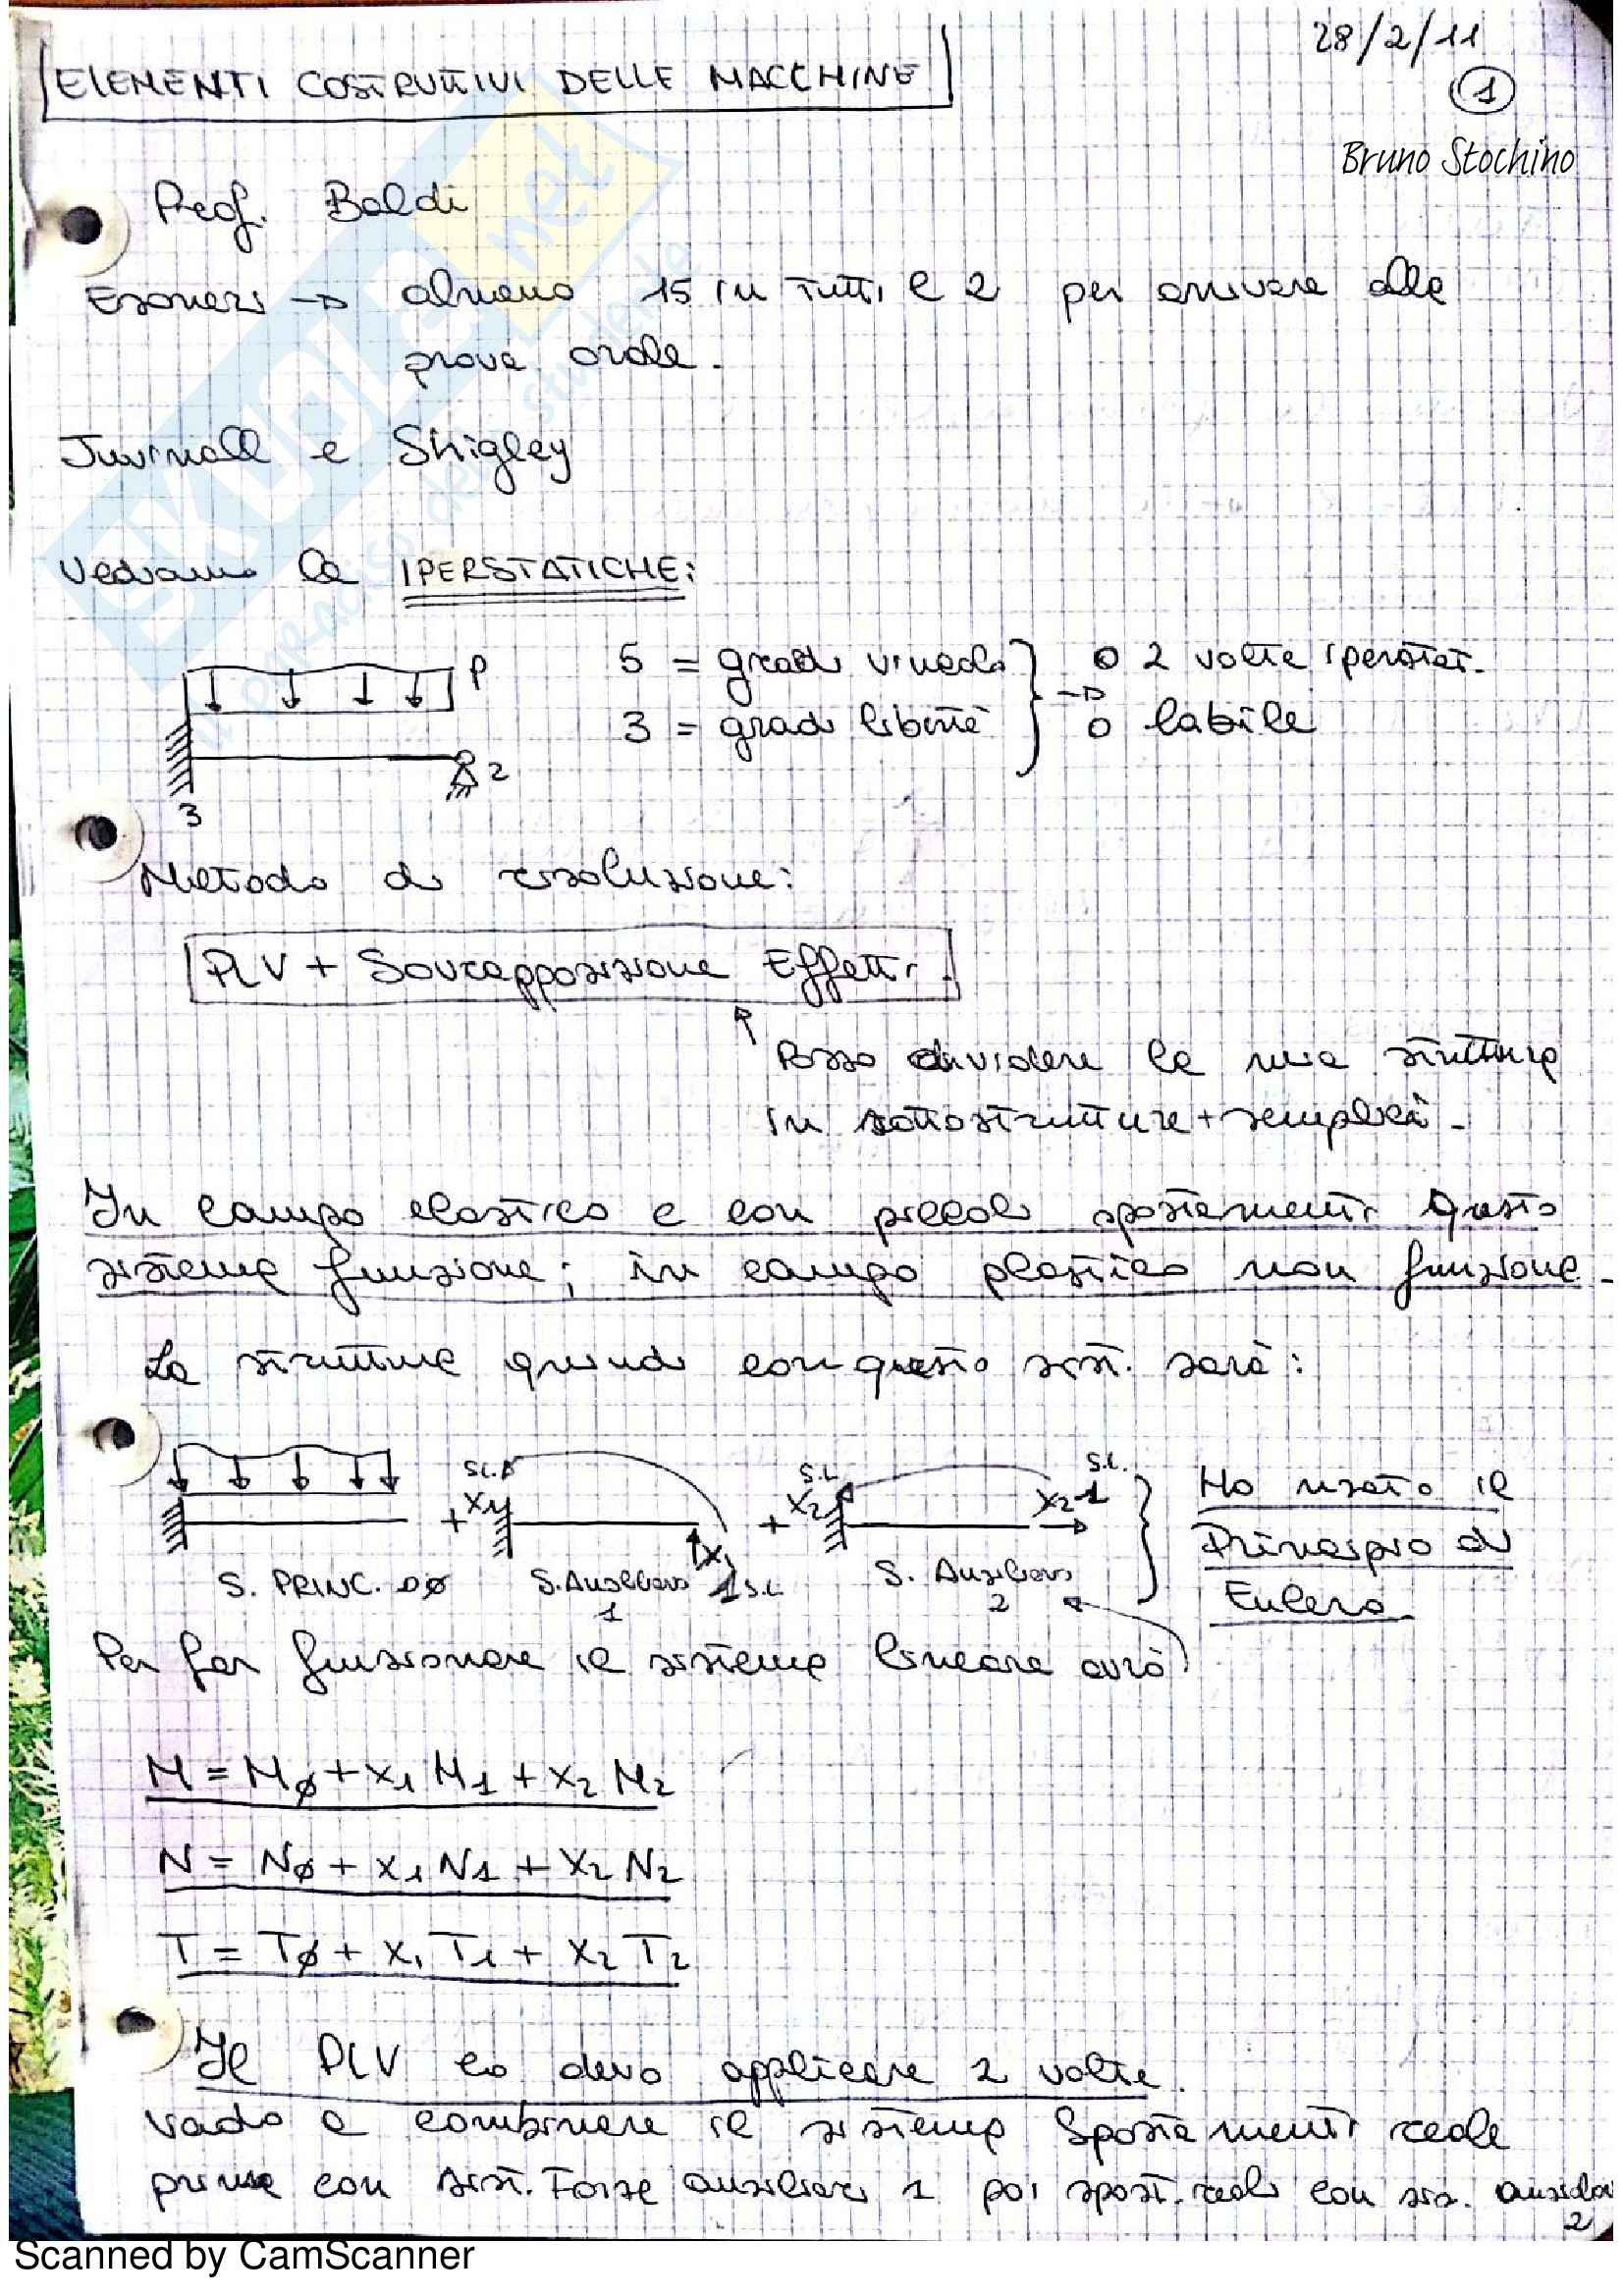 28/2/11
1
ELEMENTI COSTRUTTIVI DELLE MACCHINE
Bruno Stochino
Prof. Baldi
Esoneri → almeno 15 in tutti e 2 per arrivare alla
prova orale.
Juvinall e Shigley
Vediamo le IPERSTATICHE:
P
5 = gradi vincolo
3 = gradi libertà
→
o 2 volte iperstat.
o labile
2
3
Metodo di risoluzione:
PLV + Sovrapposizione Effetti.
Posso dividere la mia struttura
in sottostrutture + semplici.
In campo elastico e con piccoli spostamenti questo
sistema funziona; in campo plastico non funziona.
La struttura quindi con questo sist. sarà:
S. PRINC. → ø
+ X1
S.L.
X1
1 S.L.
S. Ausiliario
1
+ X2
S.L.
X2=1
S.L.
S. Ausiliario
2
Ho usato il
Principio di
Eulero
Per far funzionare il sistema lineare avrò
M = Mø + X1 M1 + X2 M2
N = Nø + X1 N1 + X2 N2
T = Tø + X1 T1 + X2 T2
Il PLV lo devo applicare 2 volte.
Vado a combinare il sistema Spostamenti reale
prima con sist. Forze ausiliari 1 poi spost. reali con sis.
2
Scanned by CamScanner
SKUOLA.net
il paradiso dello studente